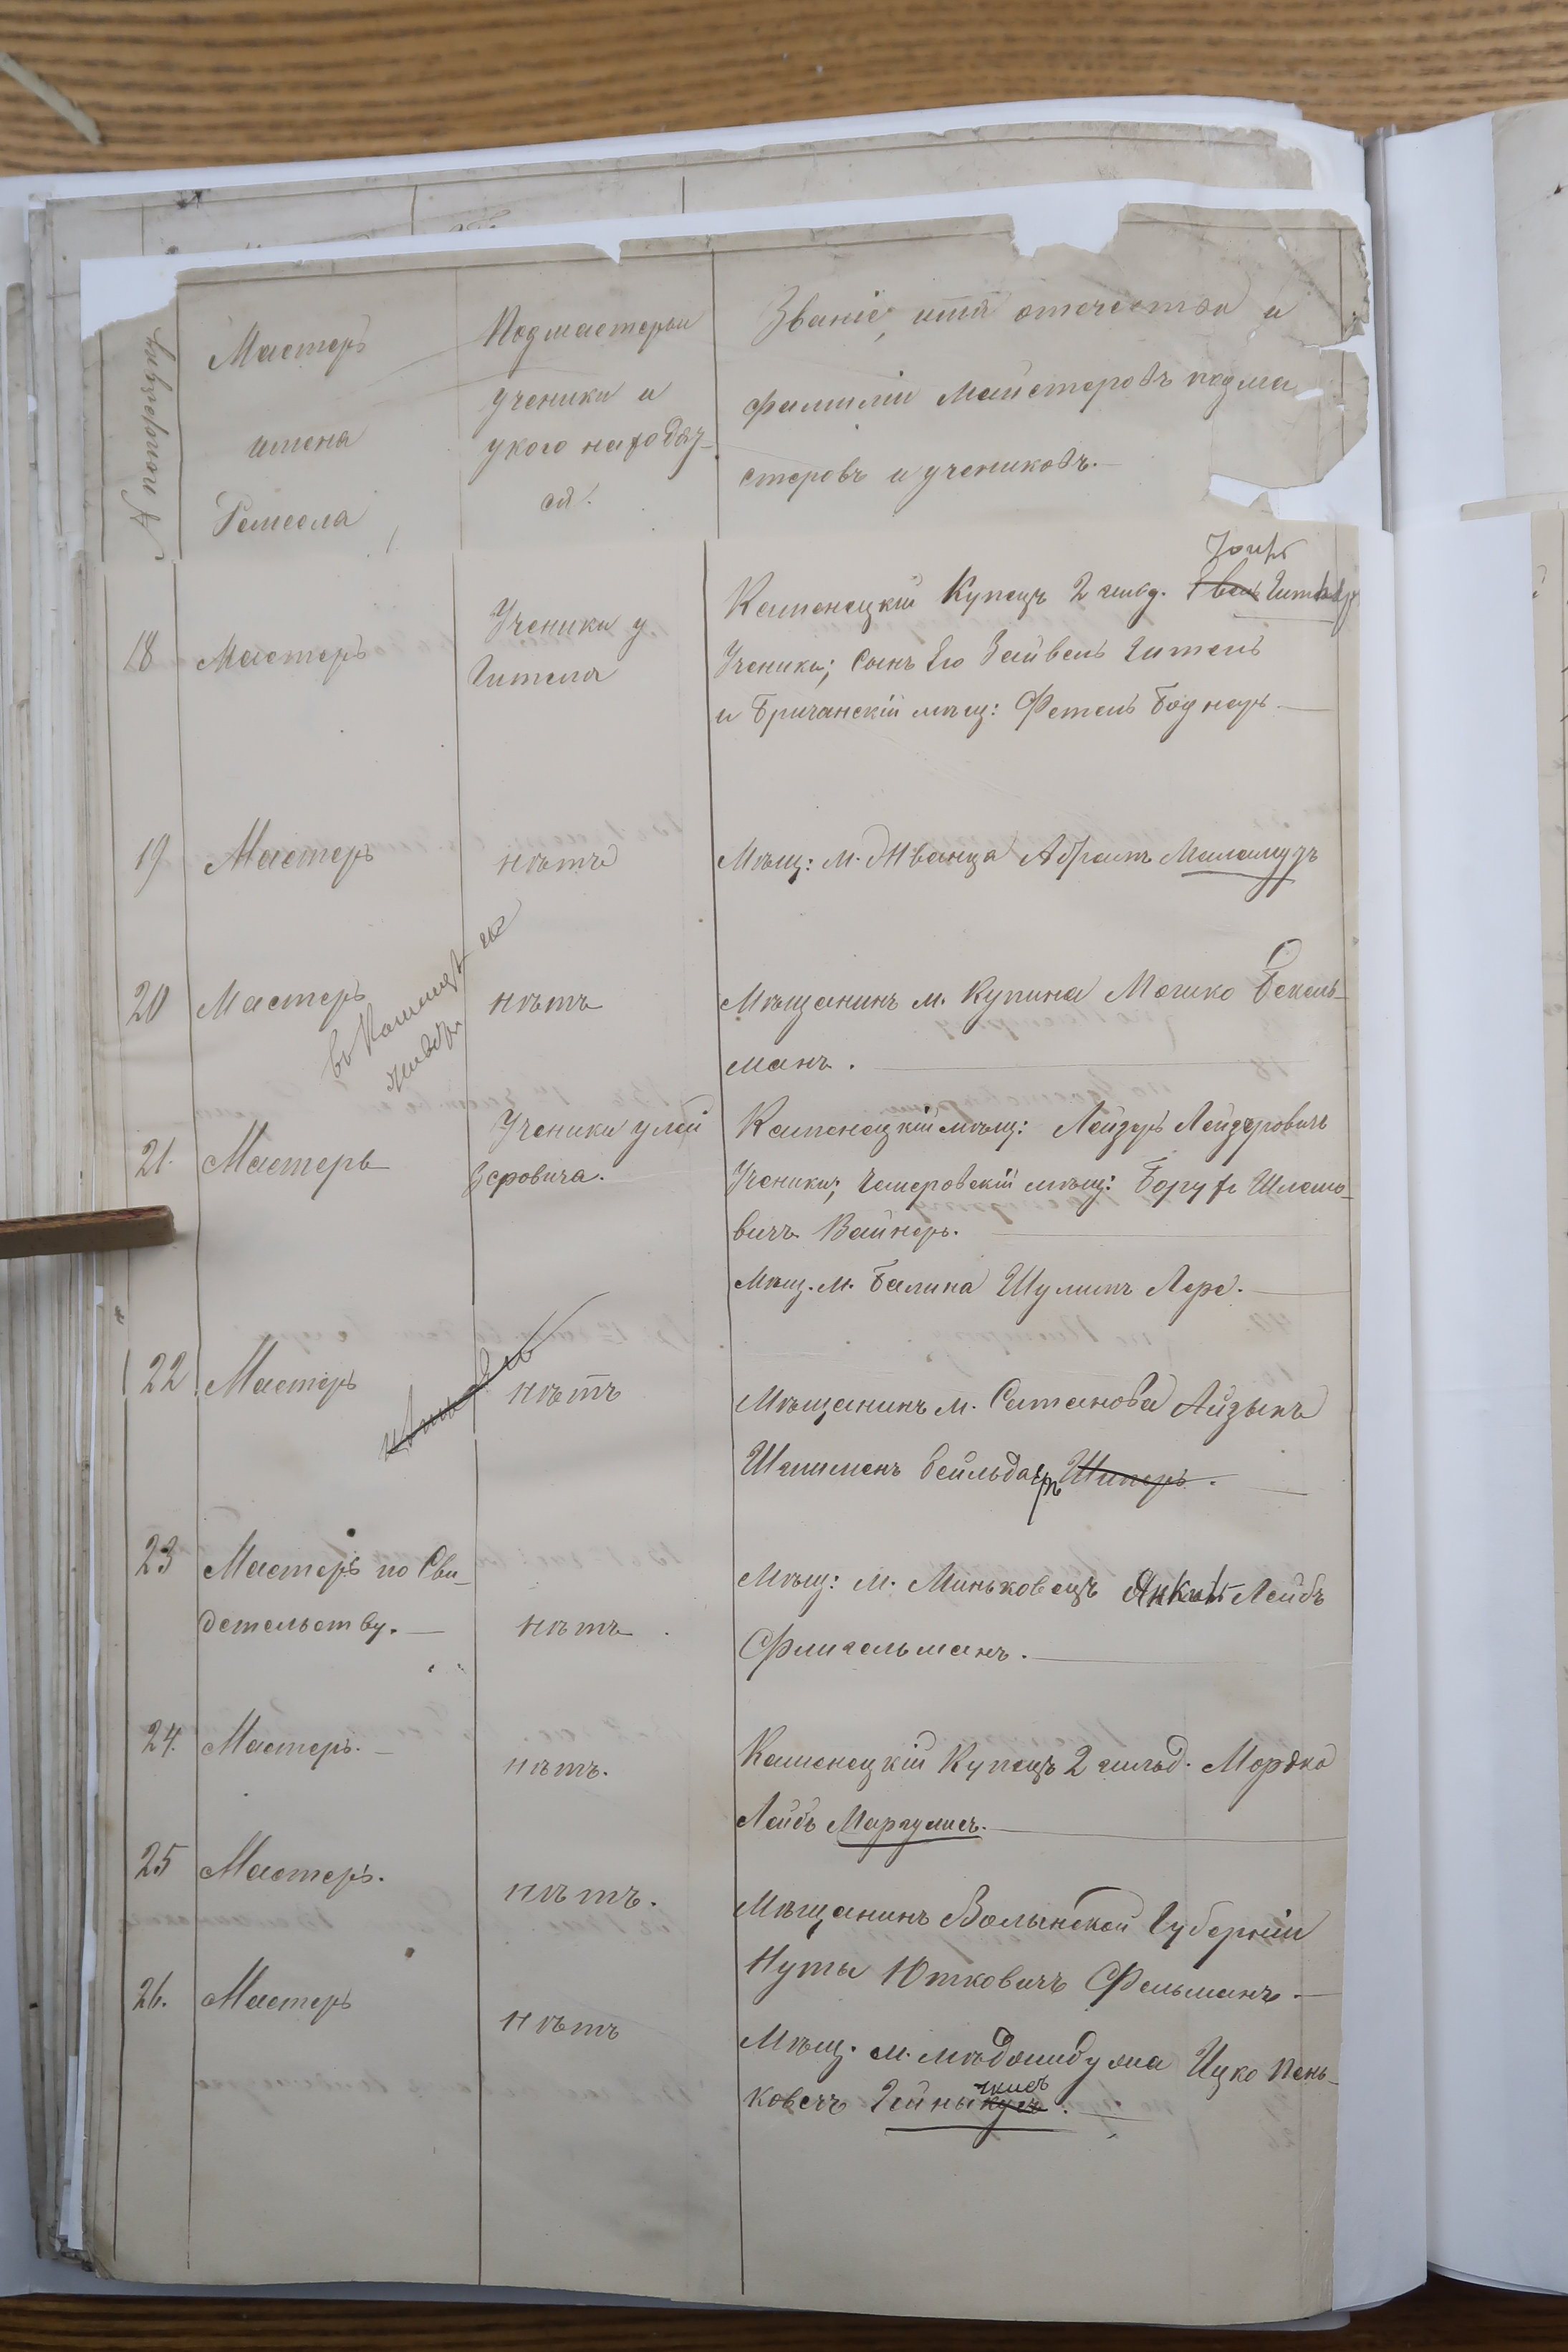 № по порядку
Мастеръ
имена
Ремесла
Подмастерьи
ученики и
у кого находят-
ся.
Званіе, имя отечество и
фамиліи Майстеровъ подма
стеровъ и учениковъ.—
18
Мастеръ
Ученики у
Гителя
Каменецкій Купецъ 2 гильд.
Ученики; Сынъ Его Зайвель Гитель
и Бричанскій мѣщ: Фетель Боднеръ
19
Мастеръ
нѣтъ
Мѣщ: м. Жванца Абрамъ Маламудъ
20
Мастеръ
нѣтъ
Мѣщанинъ м. Купина Мошко Бекель-
манъ.
21.
Мастеръ
Ученики у Лей
зеровича.
Каменецкій мѣщ: Лейзеръ Лейзеровичъ
Ученики; Чемеровскій мѣщ: Борухъ Шлемо-
вичъ Вайнеръ.
Мѣщ. м. Балина Шулимъ Лерс.
22
Мастеръ
нѣтъ
Мѣщанинъ м. Сатанова Айзыкъ
Шлименъ Шнееръ.
23
Мастеръ по Сви-
детельству.—
нѣтъ
Мѣщ: м. Миньковецъ Янкель Лейбъ
Флигельманъ.
24.
Мастеръ.—
нѣтъ.
Каменецкій Купецъ 2 гильд. Мордко
Лейбъ Маргулисъ.
25
Мастеръ.
нѣтъ.
Мѣщанинъ Волынской Губерніи
Нуты Ютковичъ Фельманъ.
26.
Мастеръ
нѣтъ
Мѣщ. м. Ицко Пень-
ковечъ